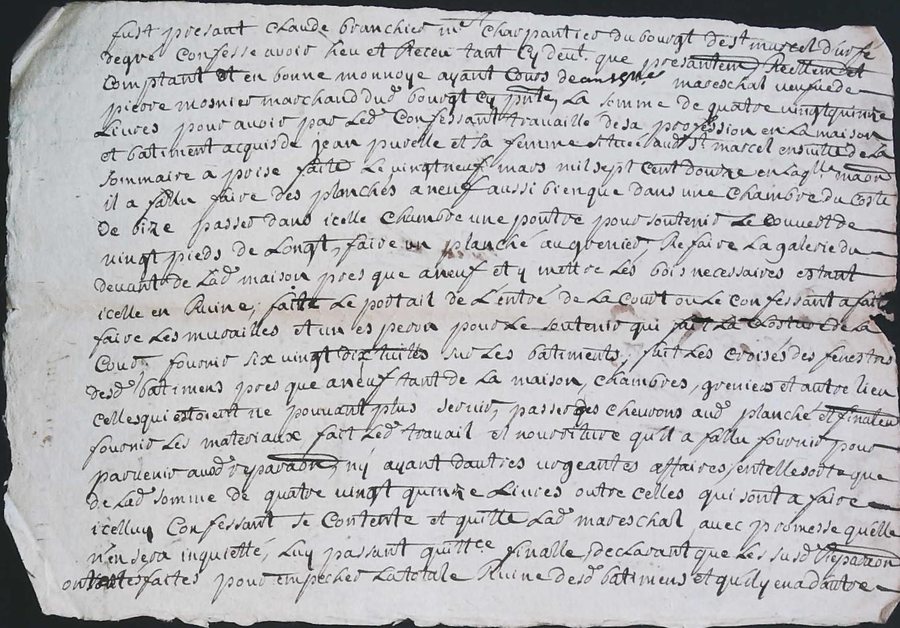 fust presant Claude branchier m.e Charpantier du bourgt de st marcel d'urfé
degré Confesse avoir heu et Receu tant Cy devt. que presantem Reellem et
Comptant et en bonne monnoye ayant Cours de mareschal veufve de
pierre mosnier marchand dud bourgt Cy pnte, La somme de quatre vingt quinze
Livres pour avoir par Led Confessant travaille de sa profession en La maison
et batiment acquis de jean purelle et sa femme situee aud st marcel ensuitte de La
sommaire a prise faite Le vingt neuf mars mil sept Cent douze en Laqlle maon
il a fallu faire des planches a neuf aussi bien que dans une chambre du Costé
de bize passer dans icelle Chambre une poutre pour soutenir Le couvert de
vingt pieds de Longt, faire un planché au grenier, Refaire La galerie du
devant de Lad maison pres que a neuf et y mettre Les bois necessaires estant
icelle en Ruine, faire Le portail de L'entré de La Court ou Le Confessant a fait
faire Les murailles et un es peron pour Le soutenir qui fait La Closture de La
Cour, fournir six vingt dix tuilles sur Les batiments, fait Les croisés des fenestres
desd batimens pres que a neuf tant de La maison, chambres, greniers et autre lieu
celles qui estoient ne pouvant plus servir, passer des cheurons aud planché et finalem
fournir Les materiaux fait Led travail et nourriture qu'il a fallu fournir pour
parvenir ausd reparaon, ny ayant dautres urgeantes affaires, en telle sorte que
de Lad somme de quatre vingt quinze Livres outre celles qui sont a faire
icelluy Confessant se Contente et quitte Lad mareschal avec promesse quelle
n'en sera inquiettée, Luy passant quittce finalle, declarant que Les susd Reparaon
ont estes faites pour empecher La totale Ruine desd batimens et quil y en a dautre